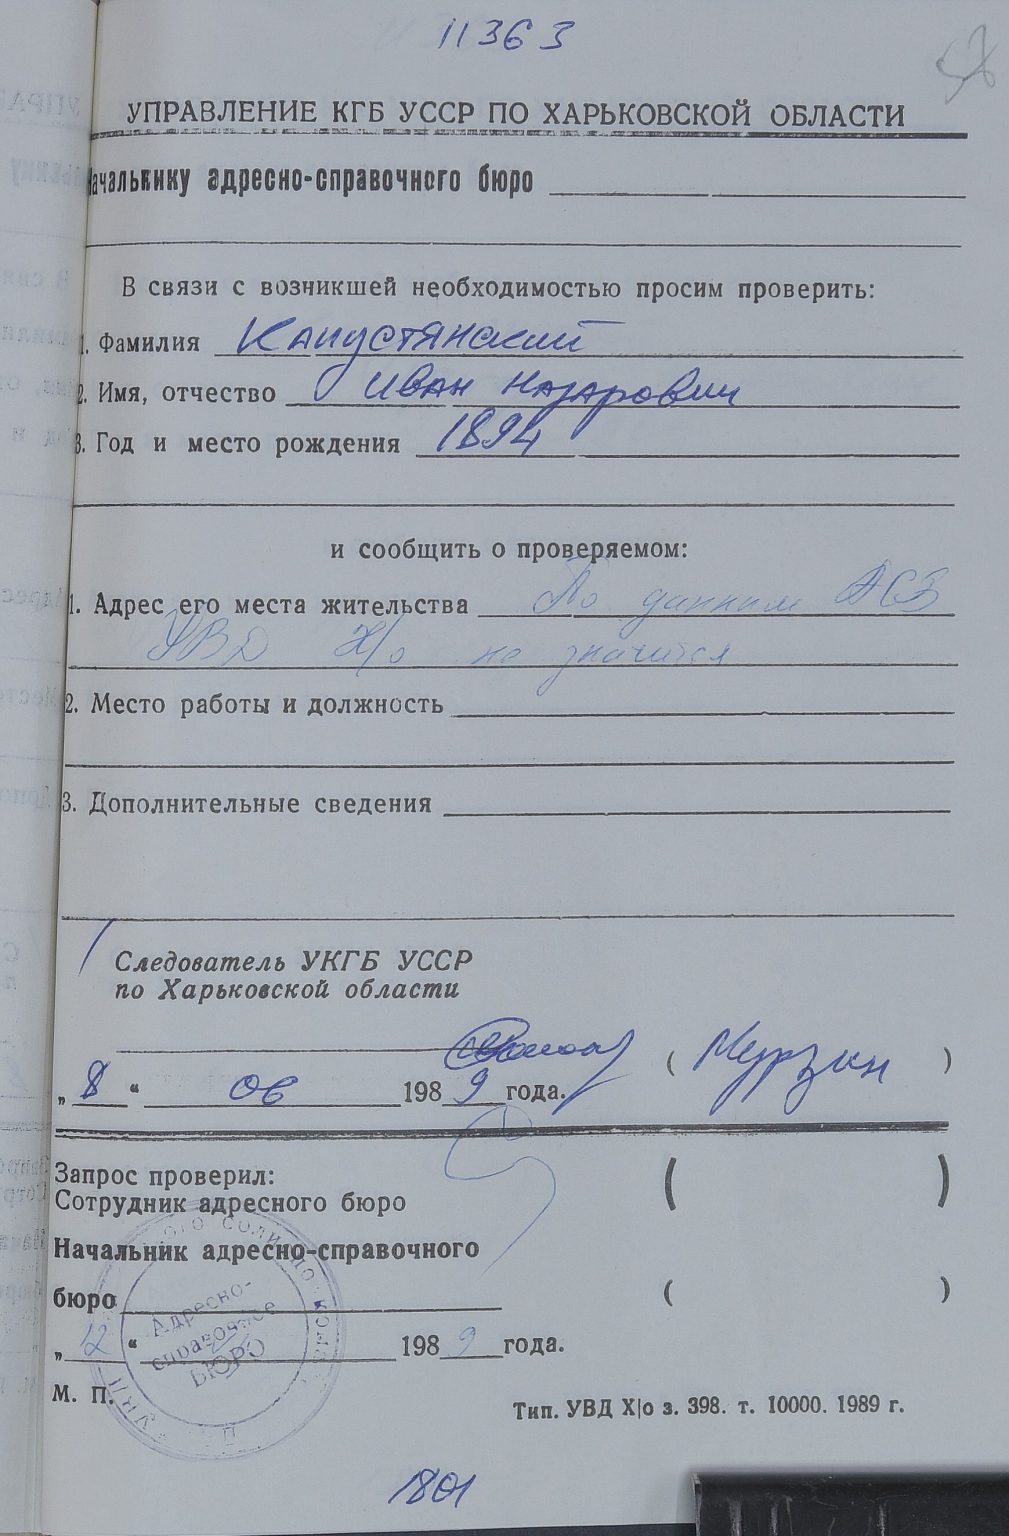 11363
57
УПРАВЛЕНИЕ КГБ УССР ПО ХАРЬКОВСКОЙ ОБЛАСТИ
Начальнику адресно-справочного бюро
В связи с возникшей необходимостью просим проверить:
1. Фамилия Капустянский
2. Имя, отчество Иван Назарович
3. Год и место рождения 1894
и сообщить о проверяемом:
1. Адрес его места жительства По данным АСБ
УВД Х/о не значится
2. Место работы и должность
3. Дополнительные сведения
Следователь УКГБ УССР
по Харьковской области
( Мурзин )
„ 8 “ 06 1989 года.
Запрос проверил:
Сотрудник адресного бюро ( )
Начальник адресно-справочного
бюро ( )
„ 12 “ 1989 года.
Адресно-
справочное
БЮРО
М. П.
Тип. УВД Х|о з. 398. т. 10000. 1989 г.
1801